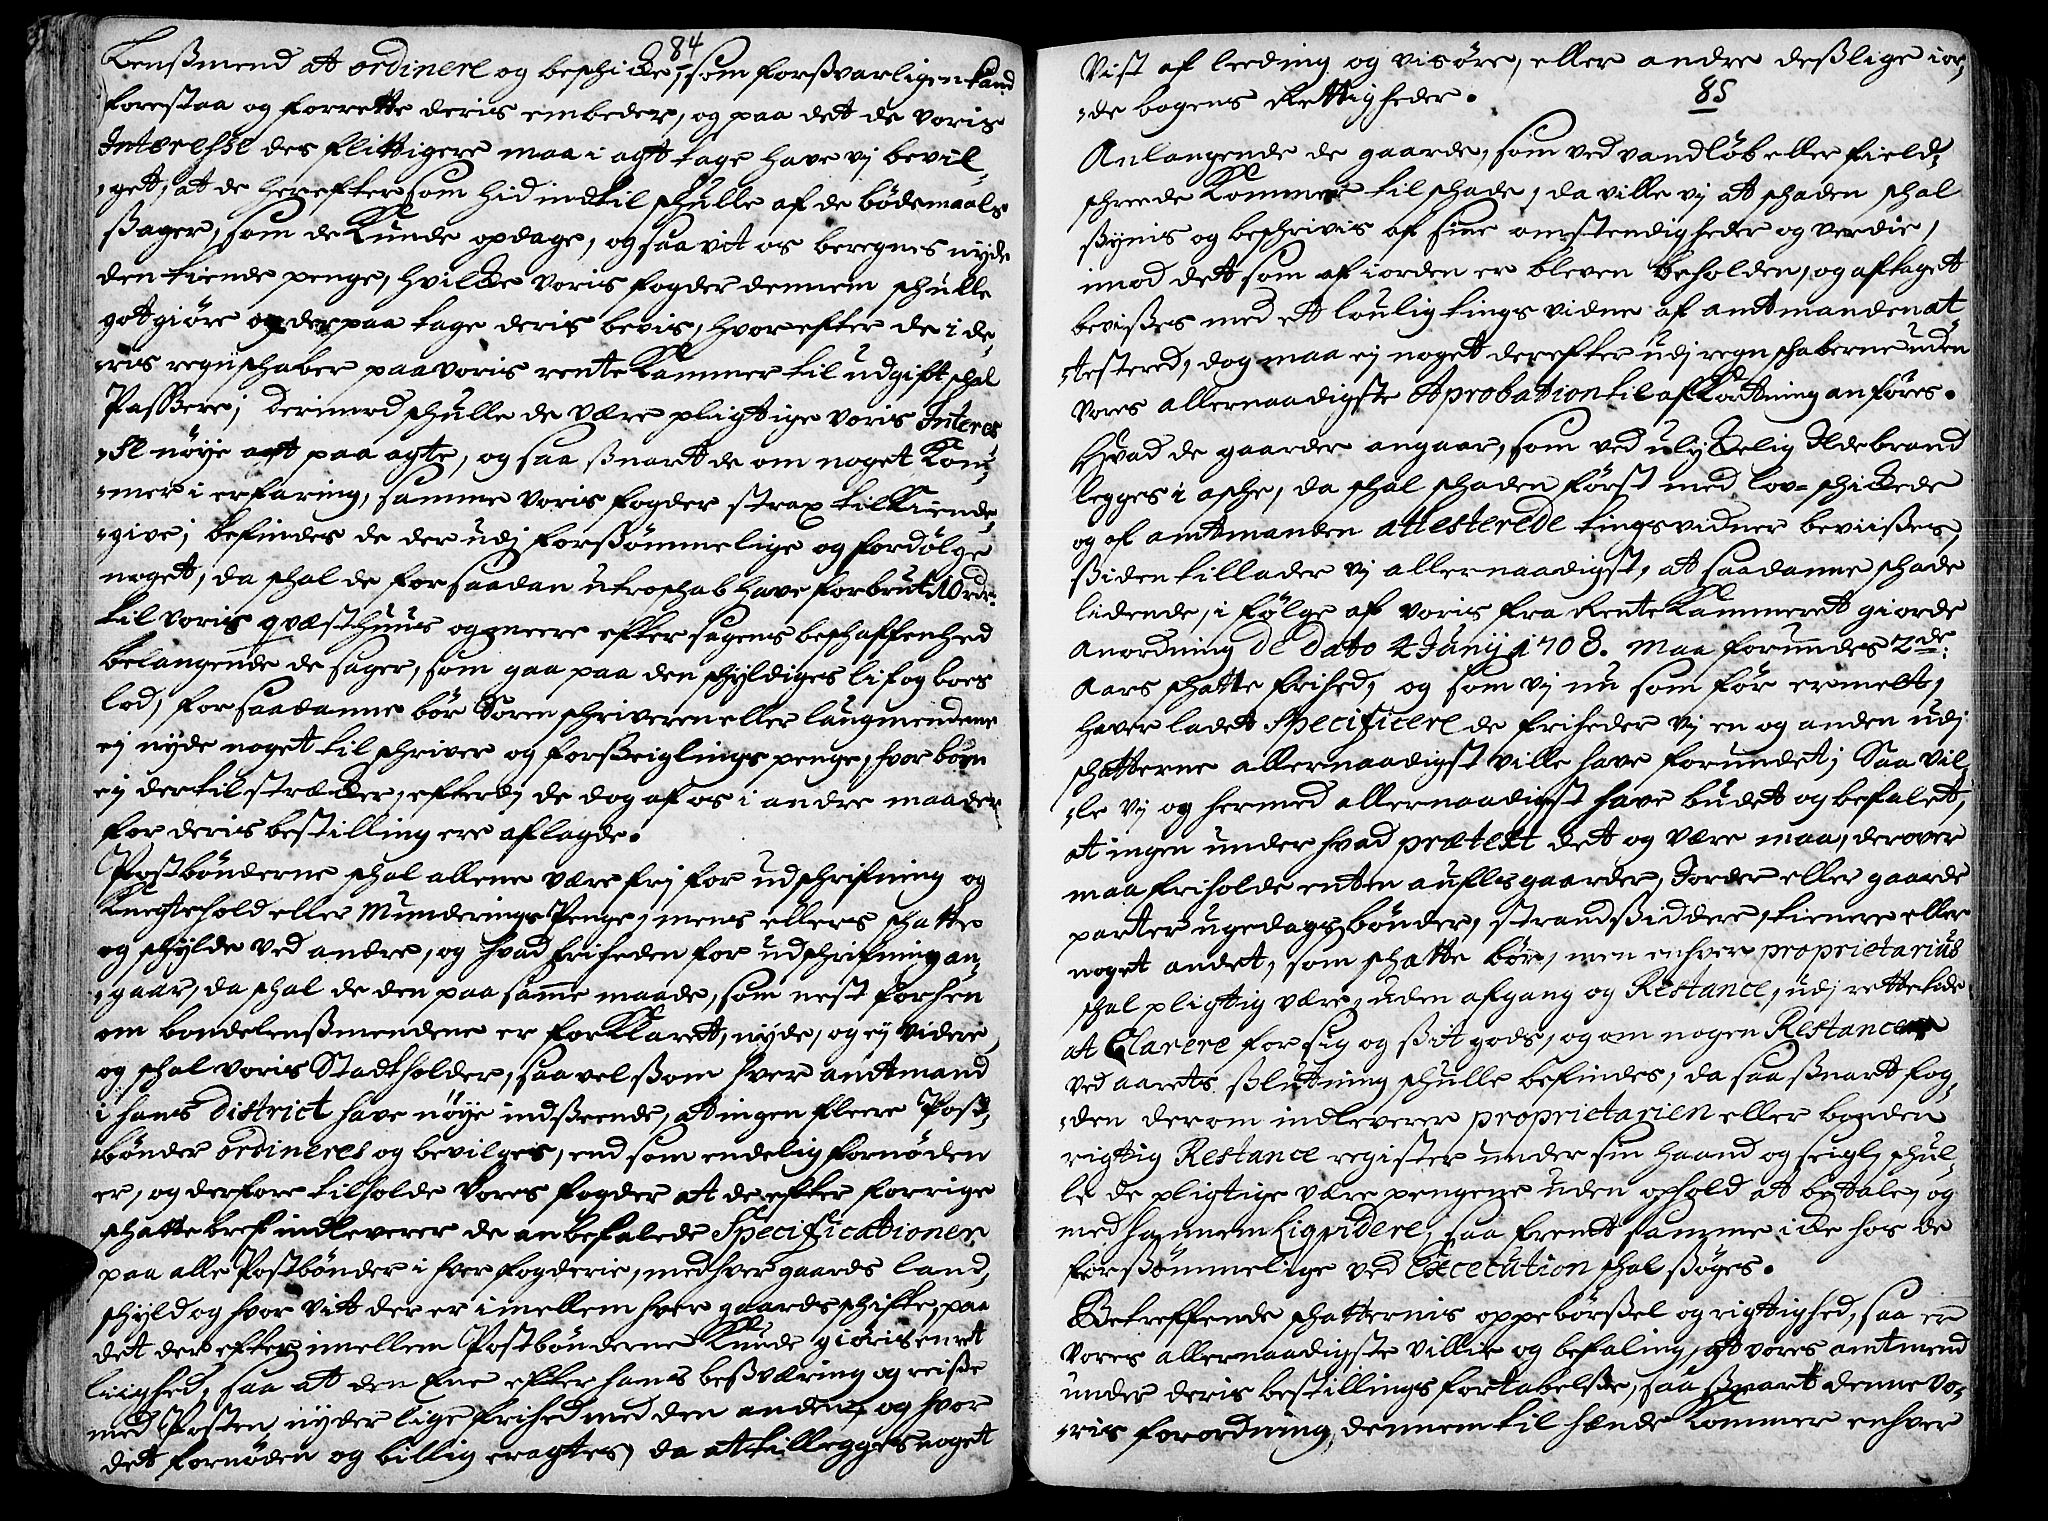 84
Lensmend at ordinere og beschicke, som forsvarligen kand
forestaa og forrette deris embeder, og paa det de voris
Interesse des flittigere maa i agt tage have vj bevil-
get, at de herefter som hid indtil schulle af de bødemaals
sager, som de kunde opdage, og saa vit os beregnes nyde
den tiende penge, hvilcke voris fogder dennem schulle
gotgiøre og derpaa tage deris bevis, hvorefter de i de-
ris regnschaber paa voris rente Kammer til udgift schal
Passere; derimod schulle de være pligtige voris Interes-
se nøye agt paa agte, og saa snart de om noget Kom-
mer i erfaring, samme voris fogder strax tilkiende-
give; befindes de der udj forsømmelige og fordølge
noget, da schal de for saadan utroschab have forbrut 10 rdr.
til voris qvæsthuus og meere efter sagens beschaffenhed
belangende de sager, som gaa paa den schyldiges lif og boes
lod, for saadanne bør Soren schriveren eller laugmendene
ej nyde noget til schriver og forseiglings penge, hvor boen
ej dertil strækker, efterdj de dog af os i andre maader
for deris bestilling ere aflagde.
Postbønderne schal allene være frj for udschrifning og
Knegtehold eller Munderings Penge, mens ellers schatte
og schylde ved andre, og hvad friheden for udschrifning an-
gaar, da schal de den paa samme maade, som nest forhen
om bondelensmendene er forklaret, nyde, og ej videre,
og schal voris Stadtholder, saavelsom hver amtmand
i hans district have nøye indseende, at ingen fleere Post-
bønder ordineres og bevilges, end som endelig fornøden
er, og derfore tilholde vores fogder at de efter forrige
schatte bref indleverer de anbefalede Specificationer
paa alle Postbønder i hver fogderie, med hver gaards land-
schyld og hvor vit der er imellem hver gaards schifte, paa
det der efter imellem Postbønderne kunde giøris en ret
liighed, saa at den Ene efter hans besværing og reise
med Posten nyder lige frihed med den anden, og hvor
det fornøden og billig eragtes, da at tillegges noget
Vist af leeding og visøre, eller andre deslige ior-
de bogens Rettigheder.
85
Anlangende de gaarde, som ved vandløb eller field-
schreede kommer til schade, da ville vj at schaden schal
synis og beschrivis af sine omstendigheder og verdie,
imod det som af iorden er bleven beholden, og aftaget
bevises med et loulig tings vidne af amtmanden at-
testered, dog maa ej noget derefter udj regnschaberne uden
vores allernaadigste Aprobation til afkortning anføres.
Hvad de gaarder angaar, som ved ulyckelig Ildebrand
legges i asche, da schal schaden først med lov-schickede
og af amtmanden attesterede tingsvidner beviises,
siden tillader vj allernaadigst, at saadanne schade
lidende, i følge af voris fra RenteKammeret giorde
anordning de dato 4 Junij 1708. maa forundes 2de:
aars schatte frihed, og som vj nu som før ermelt,
haver ladet Specificere de friheder vj en og anden udj
schatterne allernaadigst ville have forundet; Saa vil-
le vj og hermed allernaadigst have budet og befalet,
at ingen under hvad prætext det og være maa, derover
maa friholde enten aufls gaarder, Jorder eller gaarde
parter ugedags bønder, strandsiddere, tienere eller
noget andet, som schatte bør, men enhver proprietarius
schal pligtig være, uden afgang og Restance, udj rette tide
at Clarere for sig og sit gods, og om nogen Restance
ved aarets slutning schulle befindes, da saa snart fog-
den derom indleverer proprietarien eller bonden
rigtig Restance register under sin haand og seigl, schul-
le de pligtige være pengene uden ophold at betale, og
med hannem Liqvidere, saa fremt samme icke hos de
forsømmelige ved Execution schal søges.
Betreffende schatternis oppebørsel og rigtighed, saa er
vores allernaadigste villie og befaling, at vores amtmend
under deris bestillings fortabelse, saa snart denne vo-
ris forordning dennem til hænde kommer enhver